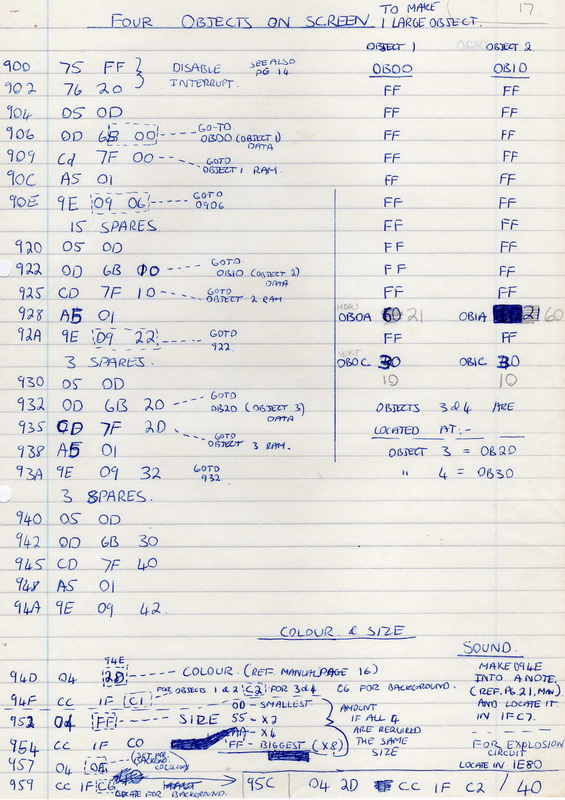 FOUR OBJECTS ON SCREEN TO MAKE 1 LARGE OBJECT. 17
OBJECT 1 OBJECT 2
900 75 FF } DISABLE SEE ALSO PG 14 0B00 0B10
902 76 20 } INTERRUPT. FF FF
904 05 0D FF FF
906 0D 6B 00 --- GO-TO 0B00 (OBJECT 1) DATA FF FF
909 Cd 7F 00 --- GOTO OBJECT 1 RAM. FF FF
90C A5 01 FF FF
90E 9E 09 06 --- GOTO 0906 FF FF
15 SPARES. FF FF
920 05 0D FF FF
922 0D 6B 10 ---- GOTO 0B10 (OBJECT 2) DATA FF FF
925 CD 7F 10 --- GOTO OBJECT 2 RAM FF FF
928 A5 01 0B0A 60 21 0B1A 21 60
92A 9E 09 22 --- GOTO 922. FF FF
3 SPARES. 0B0C 30 0B1C 30
930 05 0D 10 10
932 0D 6B 20 --- GOTO 0B20 (OBJECT 3) DATA OBJECTS 3 & 4 ARE
935 CD 7F 20 LOCATED AT:-
938 A5 01 GOTO OBJECT 3 RAM. OBJECT 3 = 0B20
93A 9E 09 32 GOTO 932. " 4 = 0B30
3 SPARES.
940 05 0D
942 0D 6B 30
945 CD 7F 40
948 A5 01
94A 9E 09 42.
COLOUR & SIZE
SOUND.
94E
94D 04 28 --- COLOUR. (REF. MANUAL PAGE 16) MAKE 094E INTO A NOTE,
94F CC 1F C1 FOR OBJECTS 1 & 2 C2 FOR 3 & 4 C6 FOR BACKGROUND. (REF, PG, 21, MAN). AND LOCATE IT
952 04 FF --- SIZE 00 - SMALLEST IN 1FC7.
55 - X2 AMOUNT IF ALL 4
954 CC 1F C0 AA - X4 ARE REQUIRED
'FF' - BIGGEST (X8) THE SAME SIZE
FOR EXPLOSION CIRCUIT
957 04 (SET FOR BACKGND. COLOUR) LOCATE IN 1E80
959 CC 1F C6 LOCATE FOR BACKGROUND. 95C 04 2D CC 1F C2 / 40